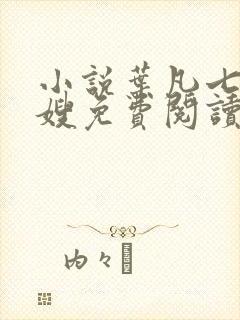 小説葉凡七
嫂免費閱讀
内々